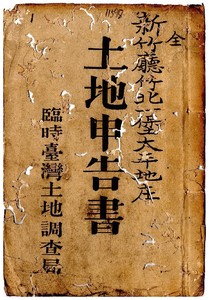 全
新竹廳竹北一堡大平地庄
土地申告書
臨時臺灣土地調查局